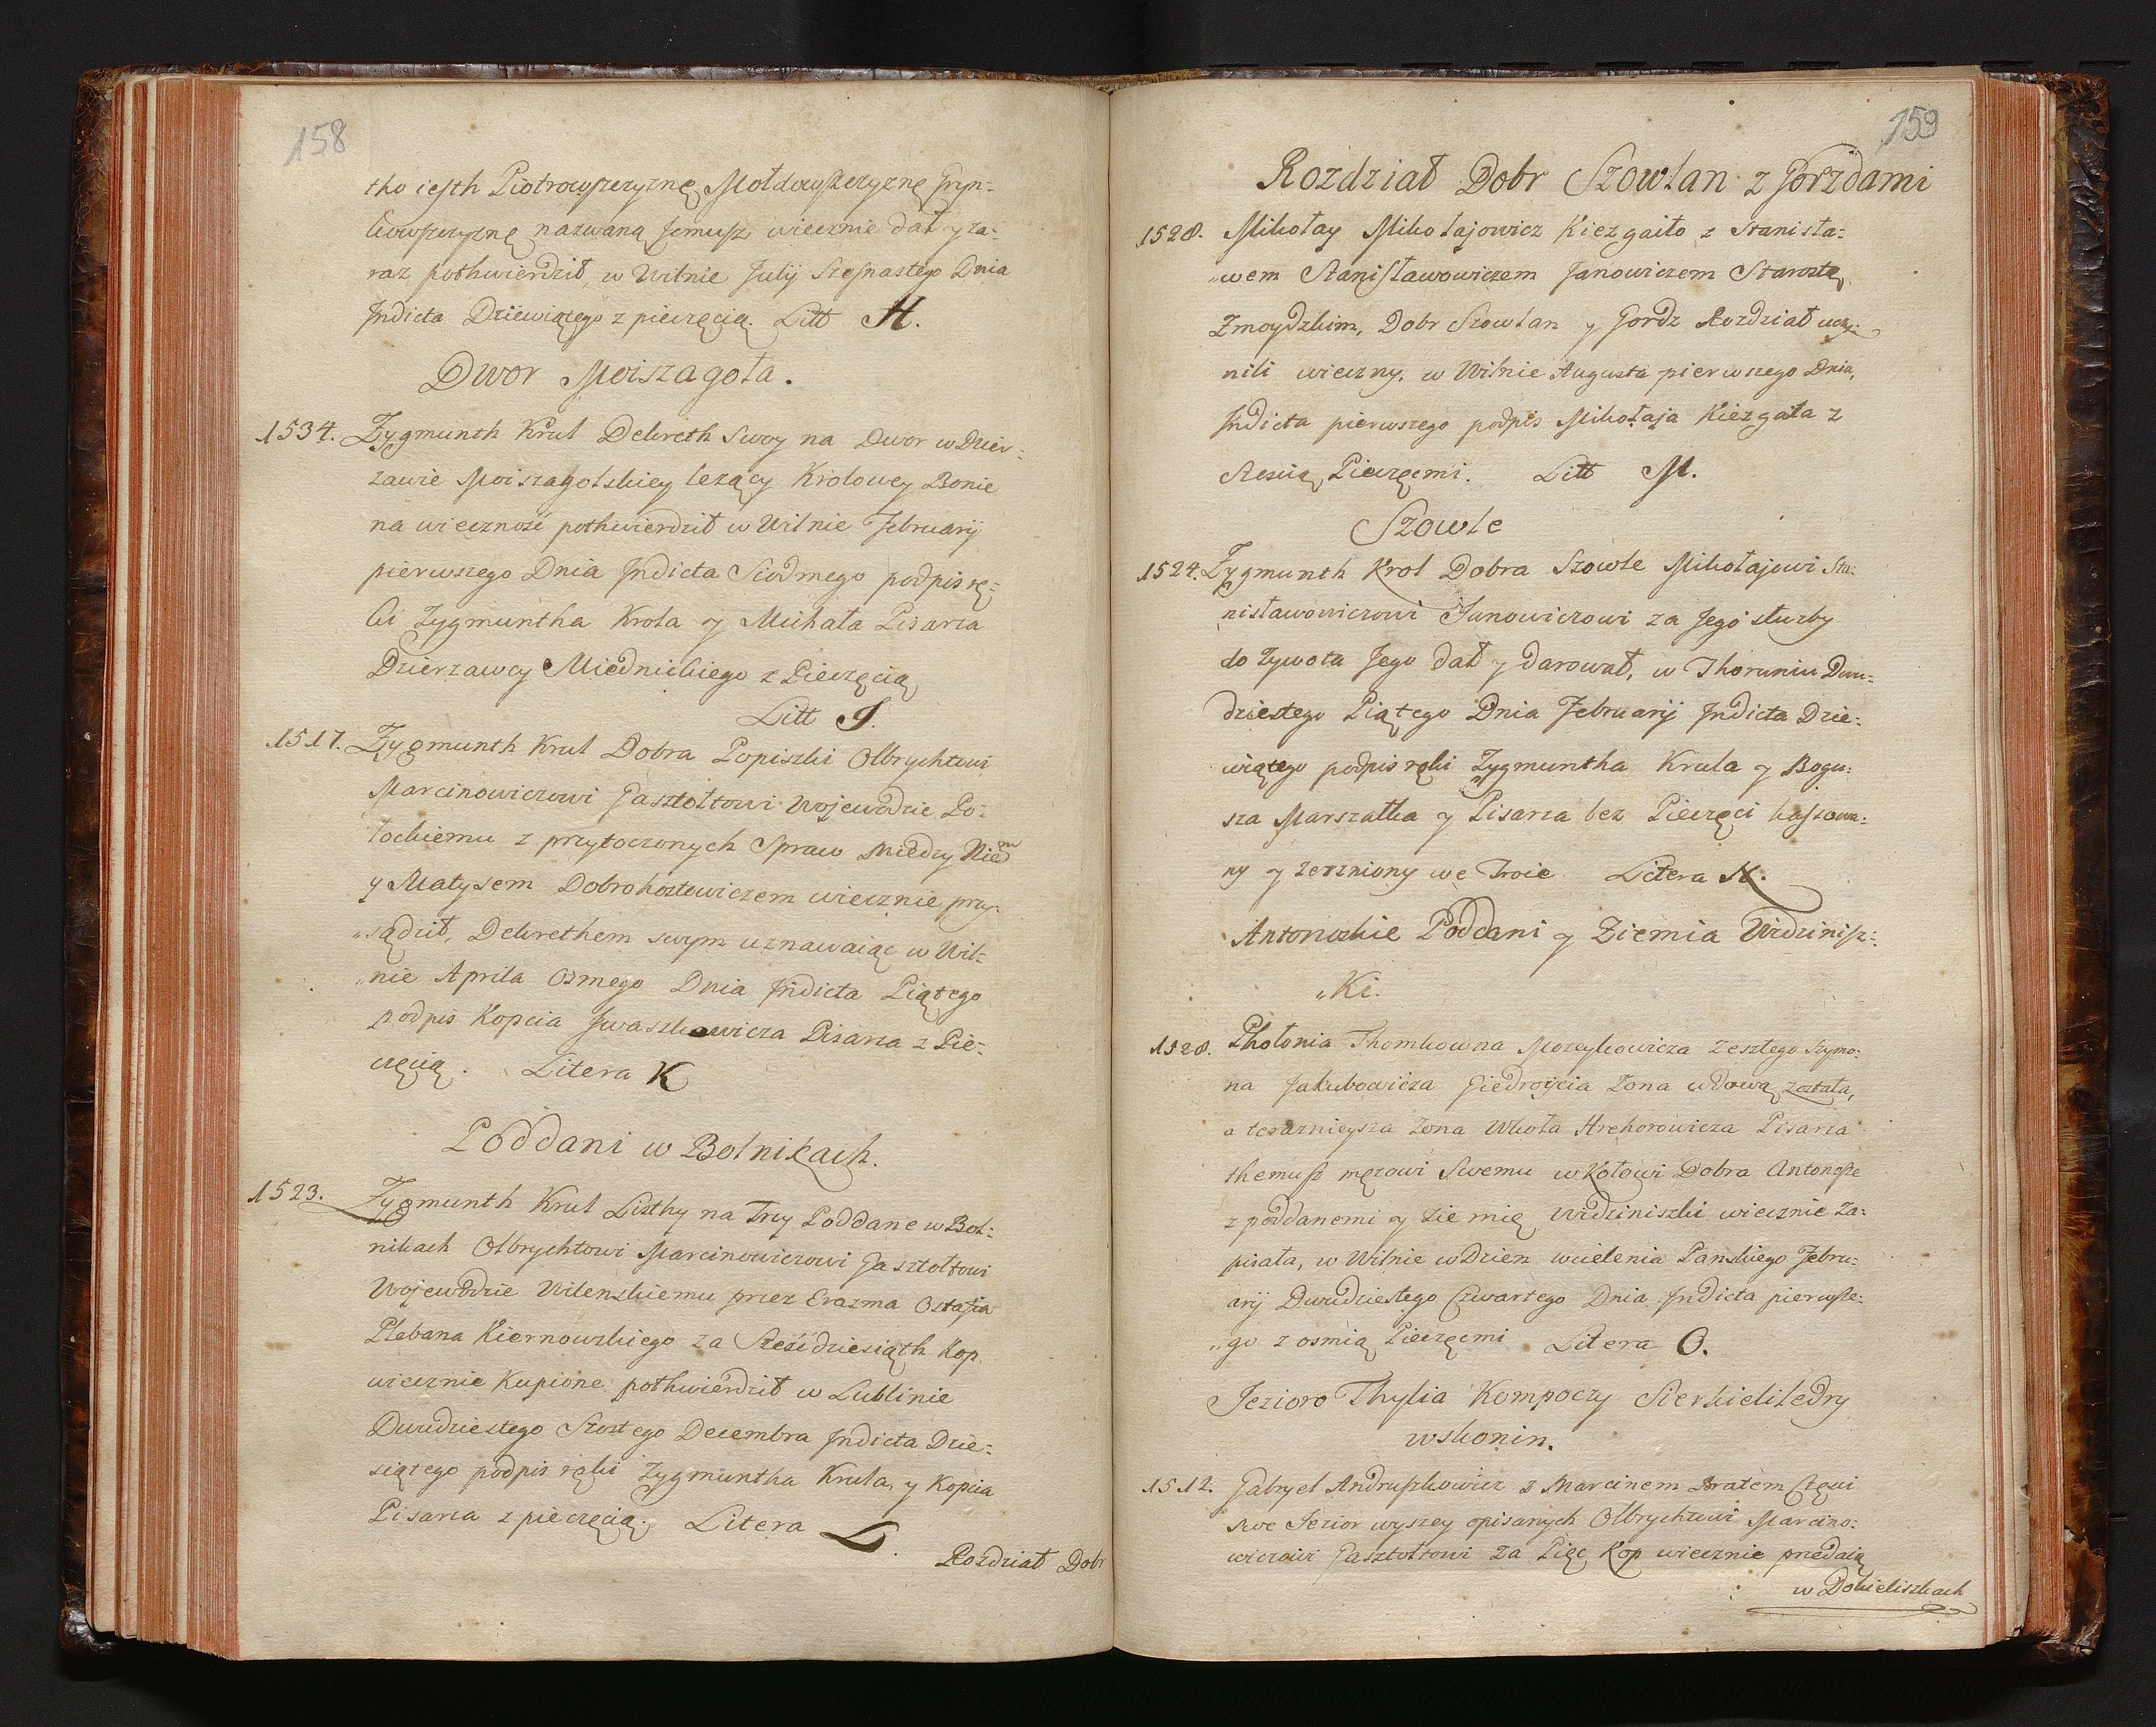 158
tho iesth Piotrowszczyznę, Mołdowszczyznę Gryn=
kowszczyznę nazwaną Jemusz wiecznie dał y za=
raz pothwierdził, w Wilnie Julij Szesnastego Dnia
Indicta Dziewiątego z pieczęcią. Litt H.
Dwor Moiszagoła.
1534. Zygmunth Krul Dekreth Swoy na Dwor w Dzier=
zawie Moiszagolskiey lezący Krolowey Bonie
na wieczność pothwierdził w Wilnie Februarij
pierwszego Dnia Indicta Siodmego podpis rę=
ki Zygmuntha Krola y Michała Pisarza
Dzierzawcy Miednickiego z Pieczęcią
Litt J.
1517. Zygmunth Krul Dobra Popiszki Olbrychtowi
Marcinowiczowi Gasztołtowi Wojewodzie Po=
łockiemu z przytoczonych Spraw miedzy Niem
y Matysem Dobrohostowiczem wiecznie przy=
„sądził, Dekrethem swym uznawaiąc w Wil=
„nie Aprila Osmego Dnia Indicta Piątego
podpis Kopcia Jwaszkowicza Pisarza z Pie=
częcią. Litera K
Poddani w Bolnikach.
1523. Zygmunth Krul Listhy na Trzy Poddane w Bol=
nikach Olbrychtowi Marcinowiczowi Gasztołtowi
Wojewodzie Wilenskiemu przez Erazma Ostafia
Plebana Kiernowskiego za Sześćdziesiąth Kop
wiecznie Kupione pothwierdził w Lublinie
Dwudziestego Szostego Decembra Indicta Dzie=
siątego podpis ręki Zygmuntha Krula, y Kopcia
Pisarza z pieczęcią. Litera L.
Rozdział Dobr
159
Rozdział Dobr Szowlan z Gorzdami
1528. Mikołay Mikołajowicz Kiezgaiło z Stanisła=
„wem Stanisławowiczem Janowiczem Starostą
Zmoydzkim, Dobr Szowlan y Gordz Rozdział uczy=
nili wieczny. w Wilnie Augusta pierwszego Dnia,
Indicta pierwszego podpis Mikołaja Kiezgała z
sześcią Pieczęcmi. Litt M.
Szowle
1524. Zygmunth Krol Dobra Szowle Mikołajowi Sta=
nisławowiczowi Janowiczowi za Jego słuzby
do Zywota Jego dał y darował, w Thoruniu Dwu=
dziestego Piątego Dnia Februarij Indicta Dzie=
wiątego podpis ręki Zygmuntha Krula y Bogu=
sza Marszałka y Pisarza bez Pieczęci kassowa=
ny y zerzniony we Troie Litera N.
Antonoskie Poddani y Ziemia Widzinisz=
„Ki.
1528. Thomkowna Mozeykowicza zeszłego Szymo=
na Jakubowicza Giedroijcia Zona wdową została,
a terazniejsza Zona Wkoła Hrehorowicza Pisarza
themusz męzowi Swemu w Kołowi Dobra Antonosze
z poddanemi y zie mię Widziniszki wiecznie Za=
pisała, w Wilnie w Dzien wcielenia Panskiego Febru=
arij Dwudziestego Czwartego Dnia Indicta pierwsze=
„go z osmią Pieczęcmi Litera O.
Jezioro Thylia Kompoczy Sierkielikedry
wskonin.
1512. Gabryel Andruszkowicz z Marcinem Bratem Częsci
swe Jezior wyszey opisanych Olbrychtowi Marcino=
wiczowi Gasztołtowi za Pięc Kop wiecznie przedaią
w Dokieliszkach